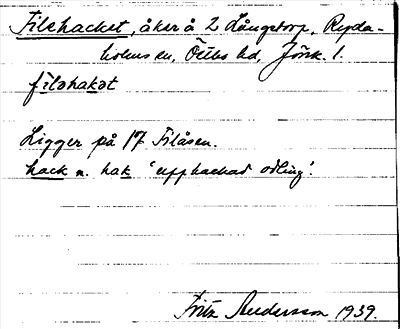 Filehacket, åker å 2 Långstorp, Ryda-
holms sn, Östbo hd, Jönk. l.
filəhakət
Ligger på 17 Filåsen.
hack n. hak 'upphackad odling'.
Fritz Andersson 1939.